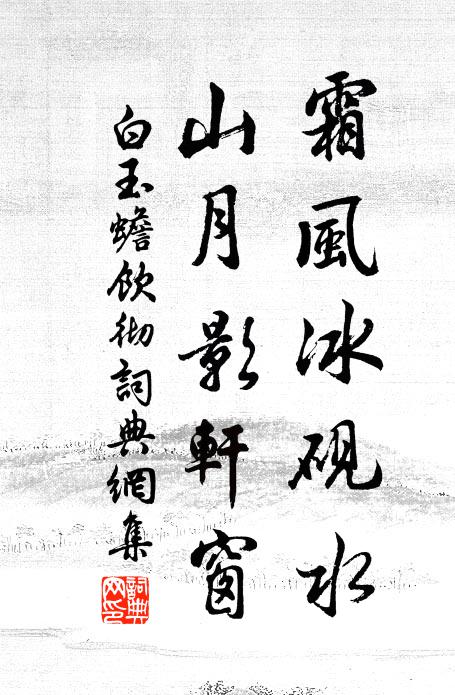 霜風冰硯水
山月影軒窗
白玉蟾飲彻詞典網集
詞典网印